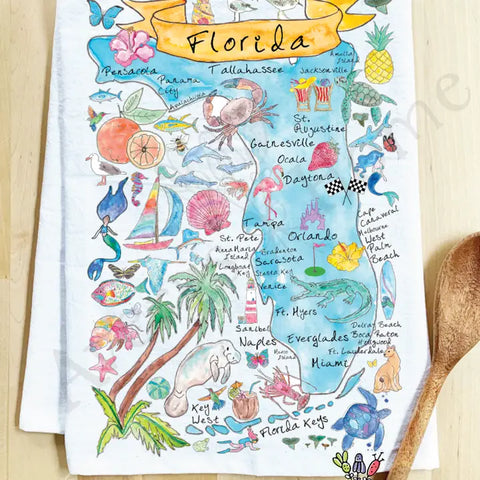 Florida
Pensacola
Panama
City
Apalachicola
Tallahassee
Jacksonville
Amelia
Island
St.
Augustine
Gainesville
Ocala
Daytona
Tampa
Orlando
Cape
Canaveral
Melbourne
West
Palm
Beach
St. Pete
Anna Maria
Island
Longboat
Key
Bradenton
Sarasota
Siesta Key
Venice
Ft. Myers
Sanibel
Naples
Marco
Island
Everglades
Miami
Delray Beach
Boca Raton
Hollywood
Ft. Lauderdale
Key
West
Florida Keys